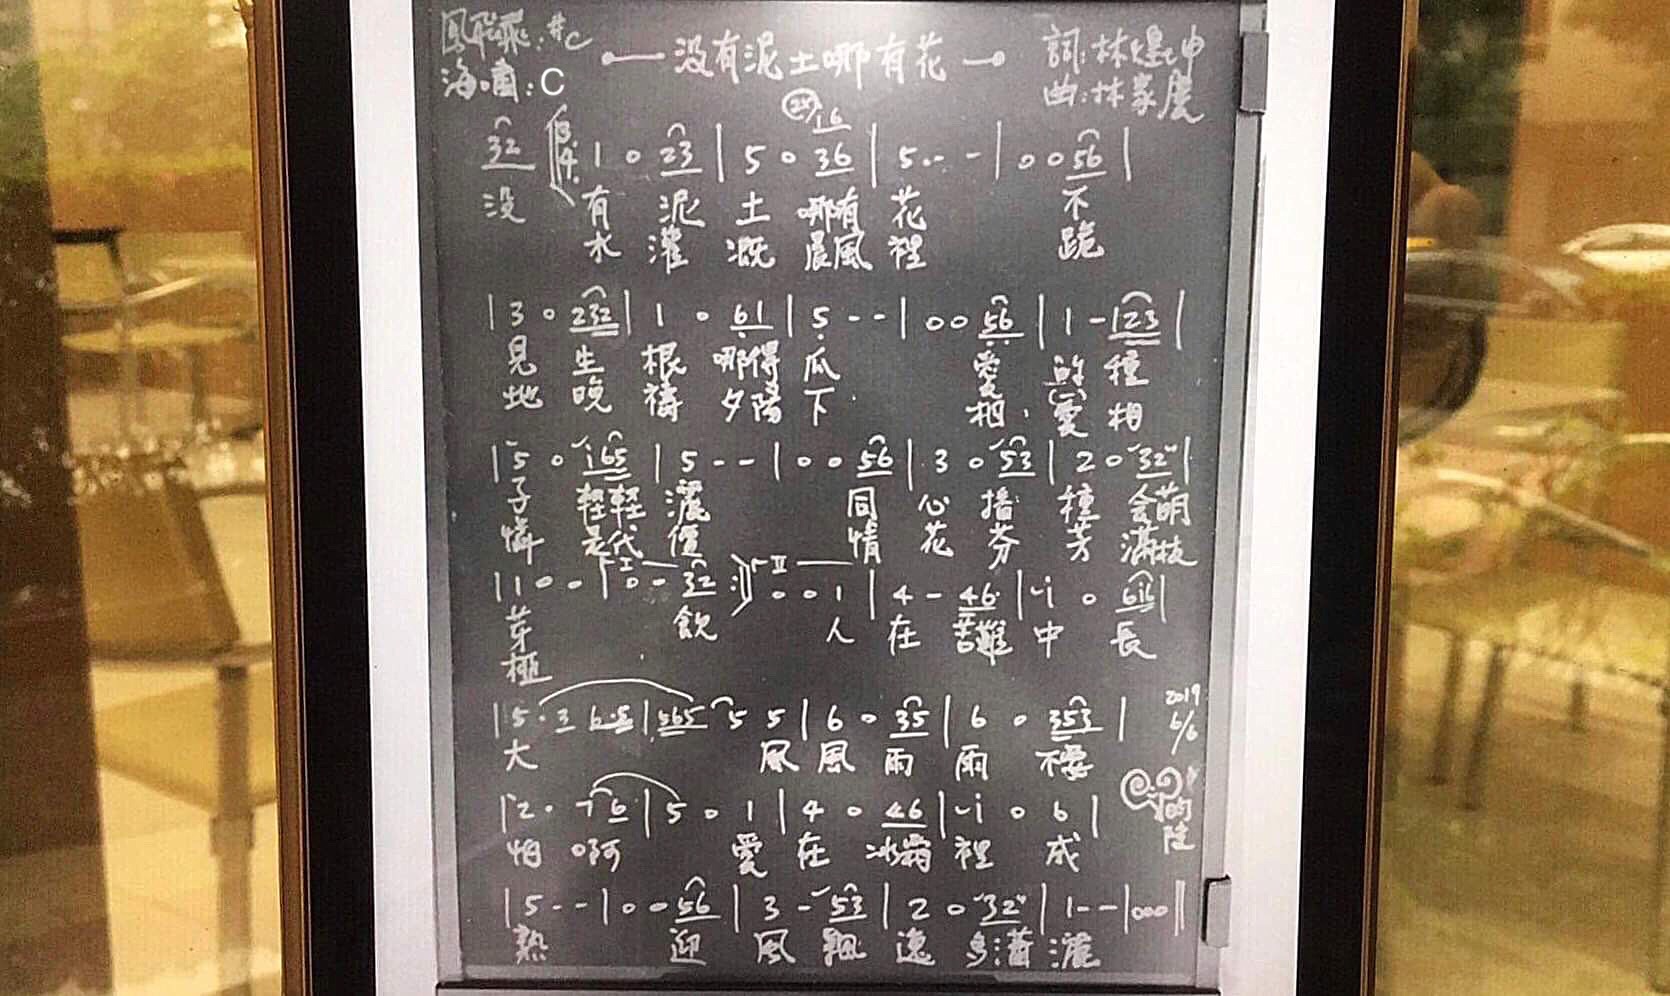 鳳飛飛:#C
海嘯:C
没有泥土哪有花
詞:林煌坤
曲:林家慶
2X 16
32 3/4 1 0 23 | 5 0 36 | 5 - - | 0 0 56 |
没 有 泥 土 哪有 花 不
水 灌 溉 晨風 裡 跪
| 3 0 232 | 1 0 61 | 5 - - | 0 0 56 | 1 - 123 |
見 生 根 哪得 瓜 愛 的 種
地 晚 禱 夕陽 下 相 愛 相
| 5 0 165 | 5 - - | 0 0 56 | 3 0 53 | 2 0 32 |
子 輕輕 灑 同 心 播 種 会萌
憐 是代 價 情 花 芬 芳 滿枝
| 1 0 0 | I 0 - 32 :| II 0 0 1 | 4 - 46 | i 0 616 |
芽 飲 人 在 苦難 中 長
椏
| 5 · 3 6·5 | 565 5 5 | 6 0 35 | 6 0 353 |
大 風 風 雨 雨 不要
2019
6/6
| 2 · 76 | 5 0 1 | 4 0 46 | i 0 6 |
怕 啊 愛 在 冰霜 裡 成
的陸
| 5 - - | 0 0 56 | 3 - 53 | 2 0 32 | 1 - - | 000 ||
熱 迎 風 飄 逸 多瀟 灑